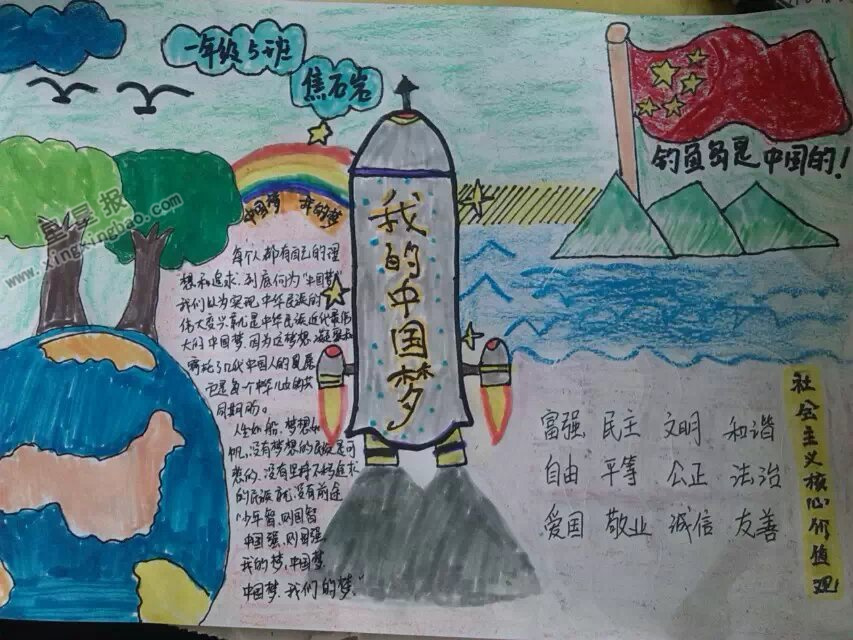 一年级5班
焦石岩
钓鱼岛是中国的!
星星报
www.xingxingbao.com
中国梦 我的梦
我的中国梦
每个人都有自己的理
想和追求,到底何为“中国梦”
我们以为实现中华民族的
伟大复兴就是中华民族近代最伟
大的中国梦,因为这梦想
了几代中国人的
也是每个中华儿女的共
同期盼。
人生如船,梦想如
帆,没有梦想的民族是可
悲的,没有坚持不
的民族 没有前途
“少年智,则国智
中国强,则国强
我的梦,中国梦
中国梦,我们的梦。”
富强 民主 文明 和谐
自由 平等 公正 法治
爱国 敬业 诚信 友善
社会主义核心价值观